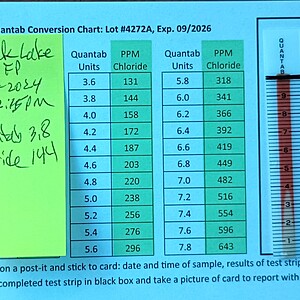 antab Conversion Chart: Lot #4272A, Exp. 09/2026
Lake
3.8
144
Quantab Units PPM Chloride
3.6 131
3.8 144
4.0 158
4.2 172
4.4 187
4.6 203
4.8 220
5.0 238
5.2 256
5.4 276
5.6 296
Quantab Units PPM Chloride
5.8 318
6.0 341
6.2 366
6.4 392
6.6 419
6.8 449
7.0 482
7.2 516
7.4 554
7.6 596
7.8 643
QUANTAB
9
8
7
6
5
4
3
2
1
on a post-it and stick to card: date and time of sample, results of test strip
completed test strip in black box and take a picture of card to report with